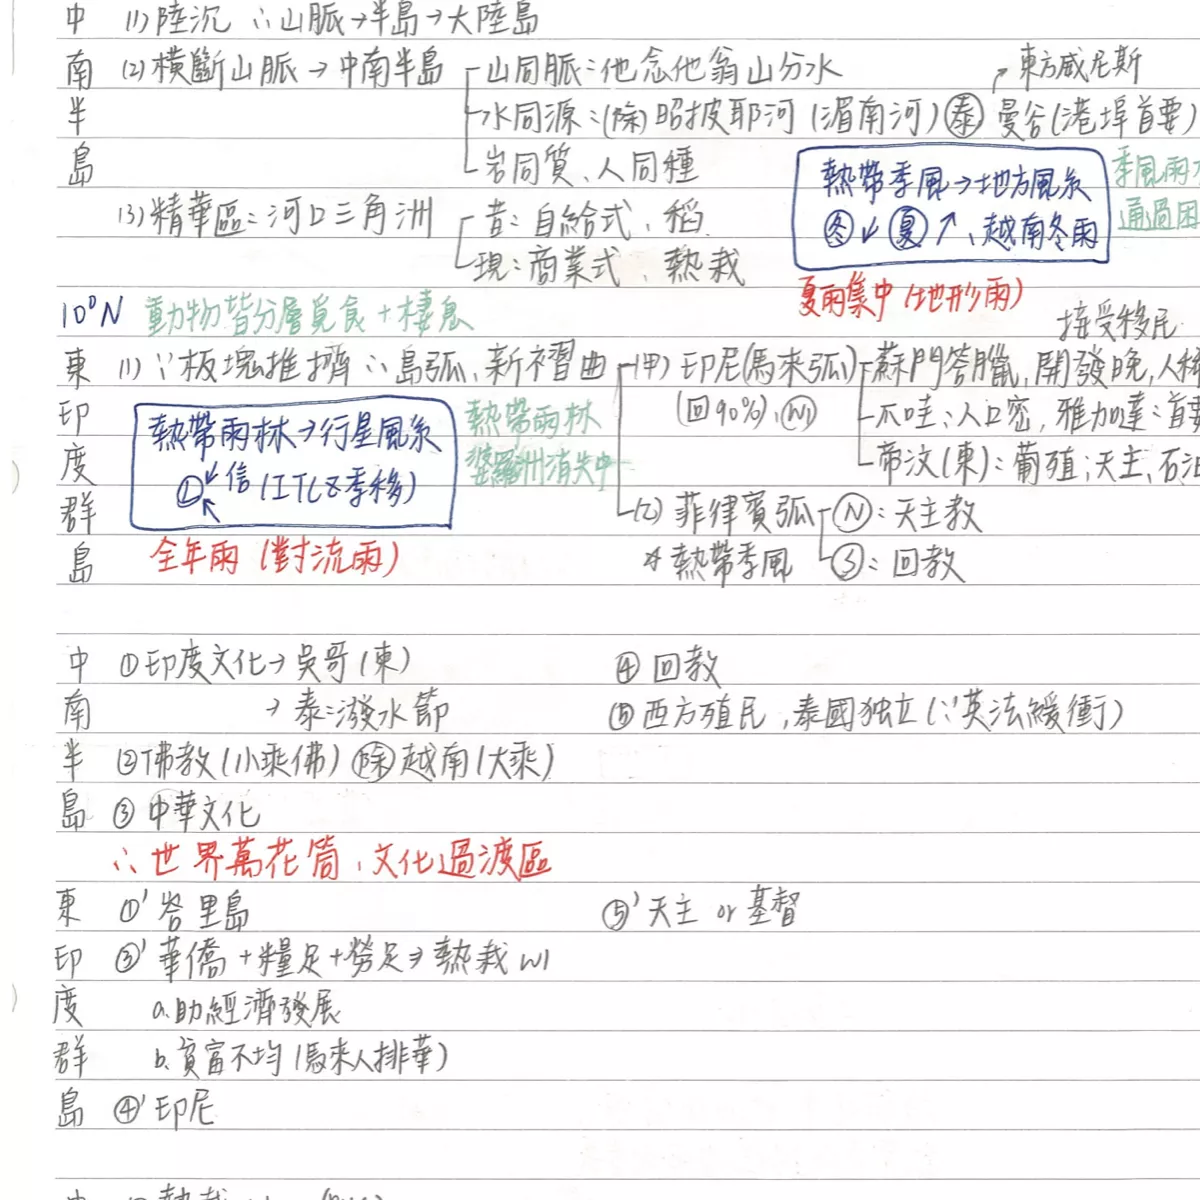 中 (1)陸沉 ∴山脈→半島→大陸島
南 (2)橫斷山脈→中南半島 山同脈:他念他翁山分水 東方威尼斯
半 水同源:(除)昭披耶河(湄南河)泰 曼谷(港埠首要)
島 岩同質、人同種
熱帶季風→地方風系 季風雨
冬↙夏↗、越南冬雨 通過困
(3)精華區:河口三角洲 昔:自給式、稻
現:商業式、熱栽
夏雨集中(地形雨)
10°N 動物皆分層覓食+棲息 接受移民
東 (1)∵板塊推擠∴島弧、新褶曲 (甲)印尼(馬來弧) 蘇門答臘,開發晚,人稀
印 (回90%) 爪哇:人口密,雅加達:首要
度 帝汶(東):葡殖;天主、石油
熱帶雨林→行星風系 熱帶雨林
L信(ITCZ季移) 婆羅洲消失中
群 (乙)菲律賓弧 N:天主教
島 全年雨(對流雨) *熱帶季風 S:回教
中 ①印度文化→吳哥(柬) ④回教
南 →泰:潑水節 ⑤西方殖民,泰國獨立(∵英法緩衝)
半 ②佛教(小乘佛)除越南(大乘)
島 ③中華文化
∴世界萬花筒、文化過渡區
東 ①'峇里島 ⑤'天主 or 基督
印 ③'華僑+糧足+勞足→熱栽 W1
度 a.助經濟發展
群 b.貧富不均(馬來人排華)
島 ④'印尼